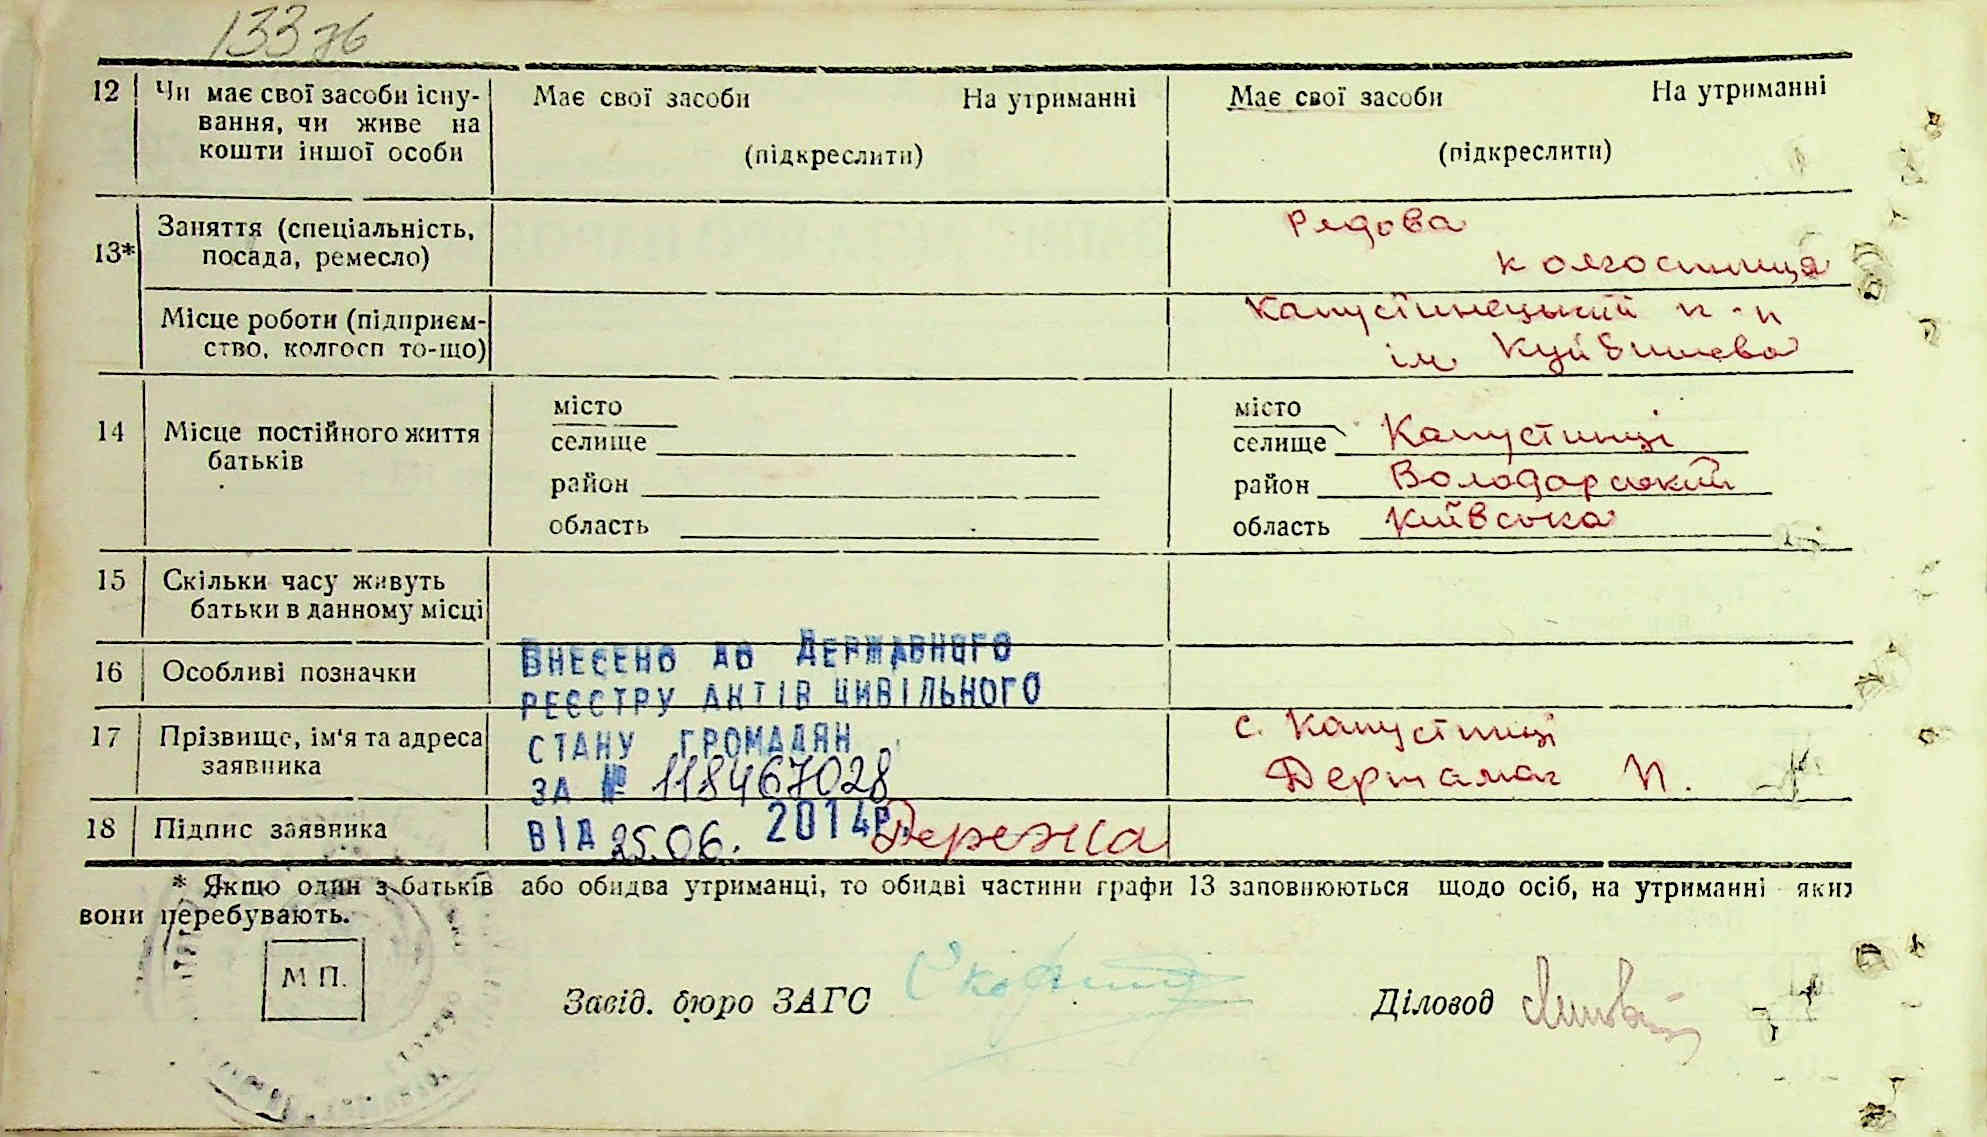 133 зв
12 Чи має свої засоби існу- Має свої засоби На утриманні Має свої засоби На утриманні
вання, чи живе на
кошти іншої особи (підкреслити) (підкреслити)
13* Заняття (спеціальність, Рядова
посада, ремесло) колгоспниця
Місце роботи (підприєм- Капустинецький
ство, колгосп то-що) ім Куйбишева
14 Місце постійного життя
батьків
місто місто
селище селище Капустинці
район район Володарський
область область Київська
15 Скільки часу живуть
батьки в данному місці
16 Особливі позначки
ВНЕСЕНО ДО ДЕРЖАВНОГО
РЕЄСТРУ АКТІВ ЦИВІЛЬНОГО
СТАНУ ГРОМАДЯН
ЗА № 118467028
ВІД 25.06. 2014Р.
17 Прізвище, ім'я та адреса с. Капустинці
заявника П.
18 Підпис заявника
* Якщо один з батьків або обидва утриманці, то обидві частини графи 13 заповнюються щодо осіб, на утриманні яких
вони перебувають.
М П.
Завід. бюро ЗАГС Діловод